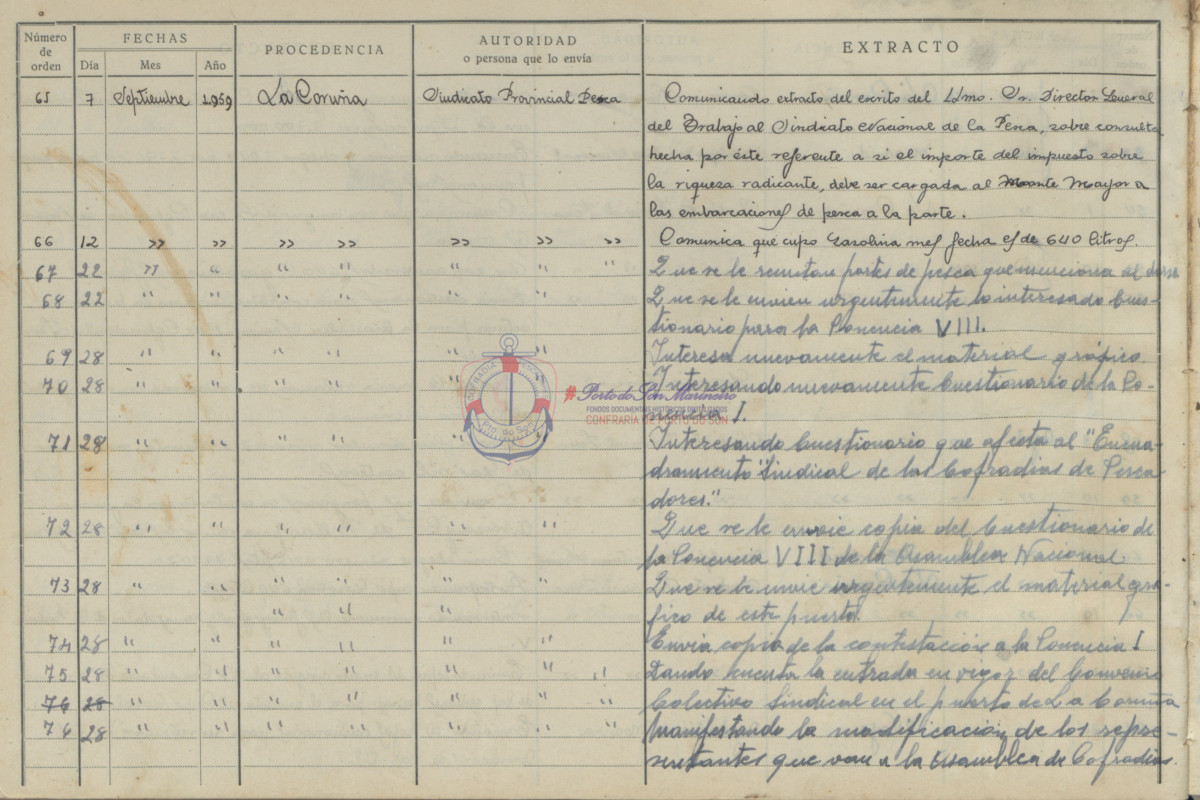 Número de orden FECHAS PROCEDENCIA AUTORIDAD o persona que lo envía EXTRACTO
Día Mes Año
65 7 Septiembre 1959 La Coruña Sindicato Provincial Pesca Comunicando extracto del escrito del Iltmo. Sr. Director General
del Trabajo al Sindicato Nacional de la Pesca, sobre consulta
hecha por éste referente a si el importe del impuesto sobre
la riqueza radicante, debe ser cargada al Monte Mayor a
las embarcaciones de pesca a la parte.
66 12 » » » » » » » Comunica que cupo Gasolina mes fecha es de 640 litros.
67 22 » " " " " " " Que se le remitan partes de pesca que menciona al dorso
68 22 " " " " " " Que se le envien urgentemente lo interesado Cues-
tionario para la Ponencia VIII.
69 28 " " " " " " Interesa nuevamente el material gráfico
70 28 " " " " " Interesando nuevamente Cuestionario de la Po-
nencia I.
71 28 " " " " " Interesando Cuestionario que afecta al "Encua-
dramiento Sindical de las Cofradías de Pesca-
dores."
72 28 " " " " " " Que se le envie copia del Cuestionario de
la Ponencia VIII de la Asamblea Nacional
73 28 " " " " " Que se le envie urgentemente el material grá-
" " " fico de este puerto
74 28 " " " " " " Envia copia de la contestación a la Ponencia I
75 28 " " " " " " " Dando cuenta la entrada en vigor del Convenio
76 28 " " " " " " " Colectivo Sindical en el puerto de La Coruña
76 28 " " " " " " " Manifestando la modificación de los repre-
sentantes que van a la Asamblea de Cofradías.
COFRADIA PESCADORES
Pto. do Son
#Porto do Son Mariñeiro
FONDOS DOCUMENTAIS HISTÓRICOS DIXITALIZADOS
CONFRARÍA DE PORTO DO SON